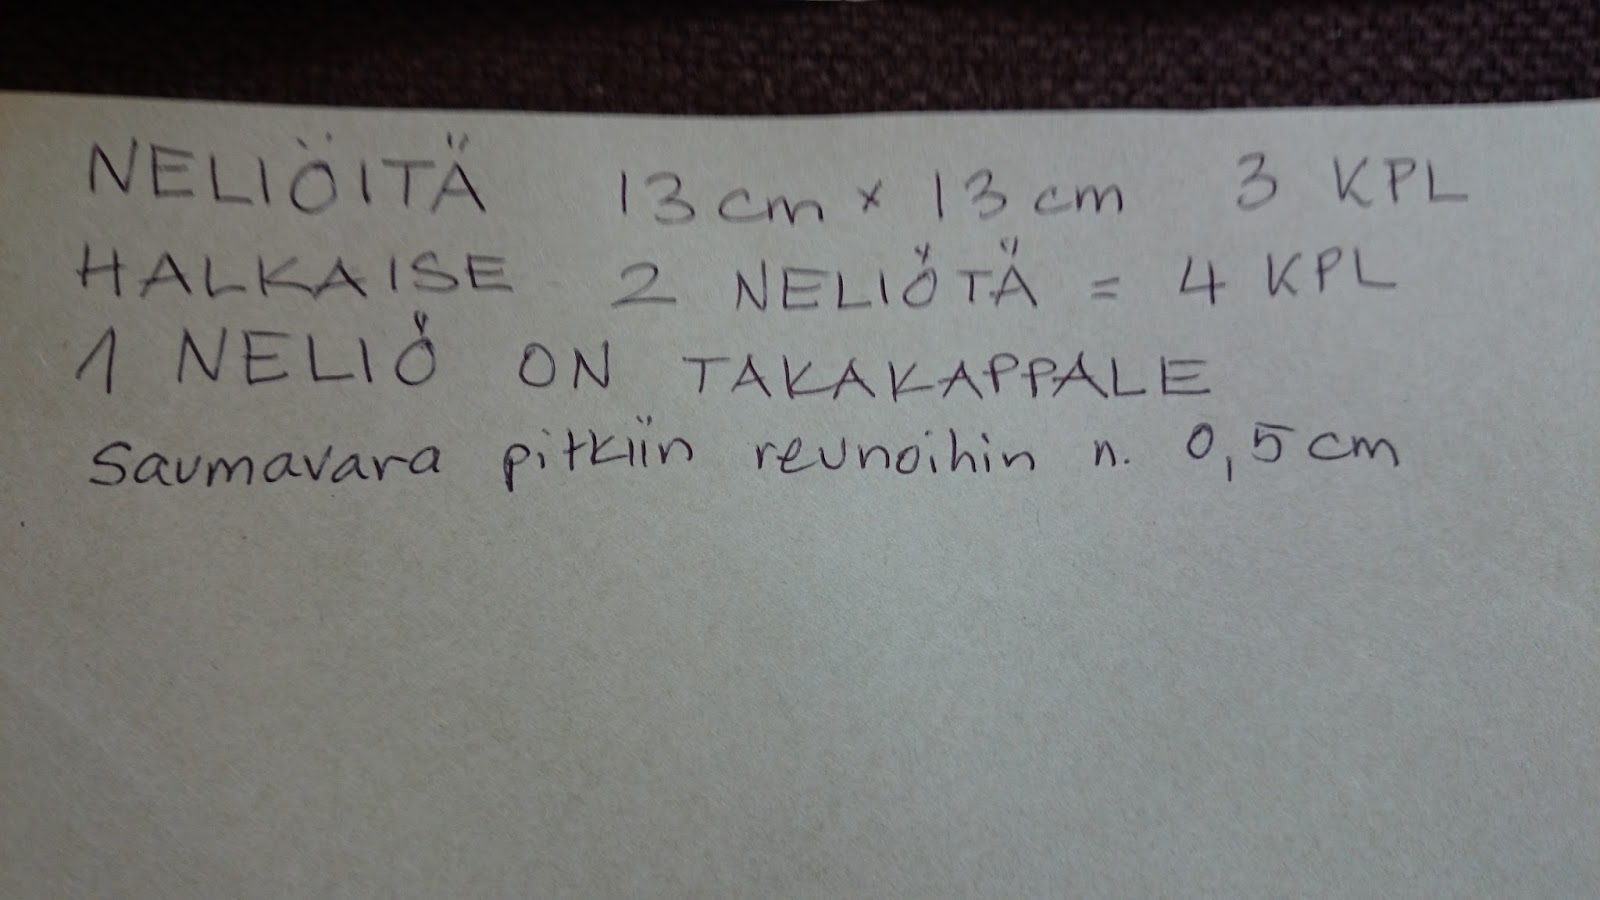 NELIÖITÄ 13 cm x 13 cm 3 KPL
HALKAISE 2 NELIÖTÄ = 4 KPL
1 NELIÖ ON TAKAKAPPALE
Saumavara pitkiin reunoihin n. 0,5 cm